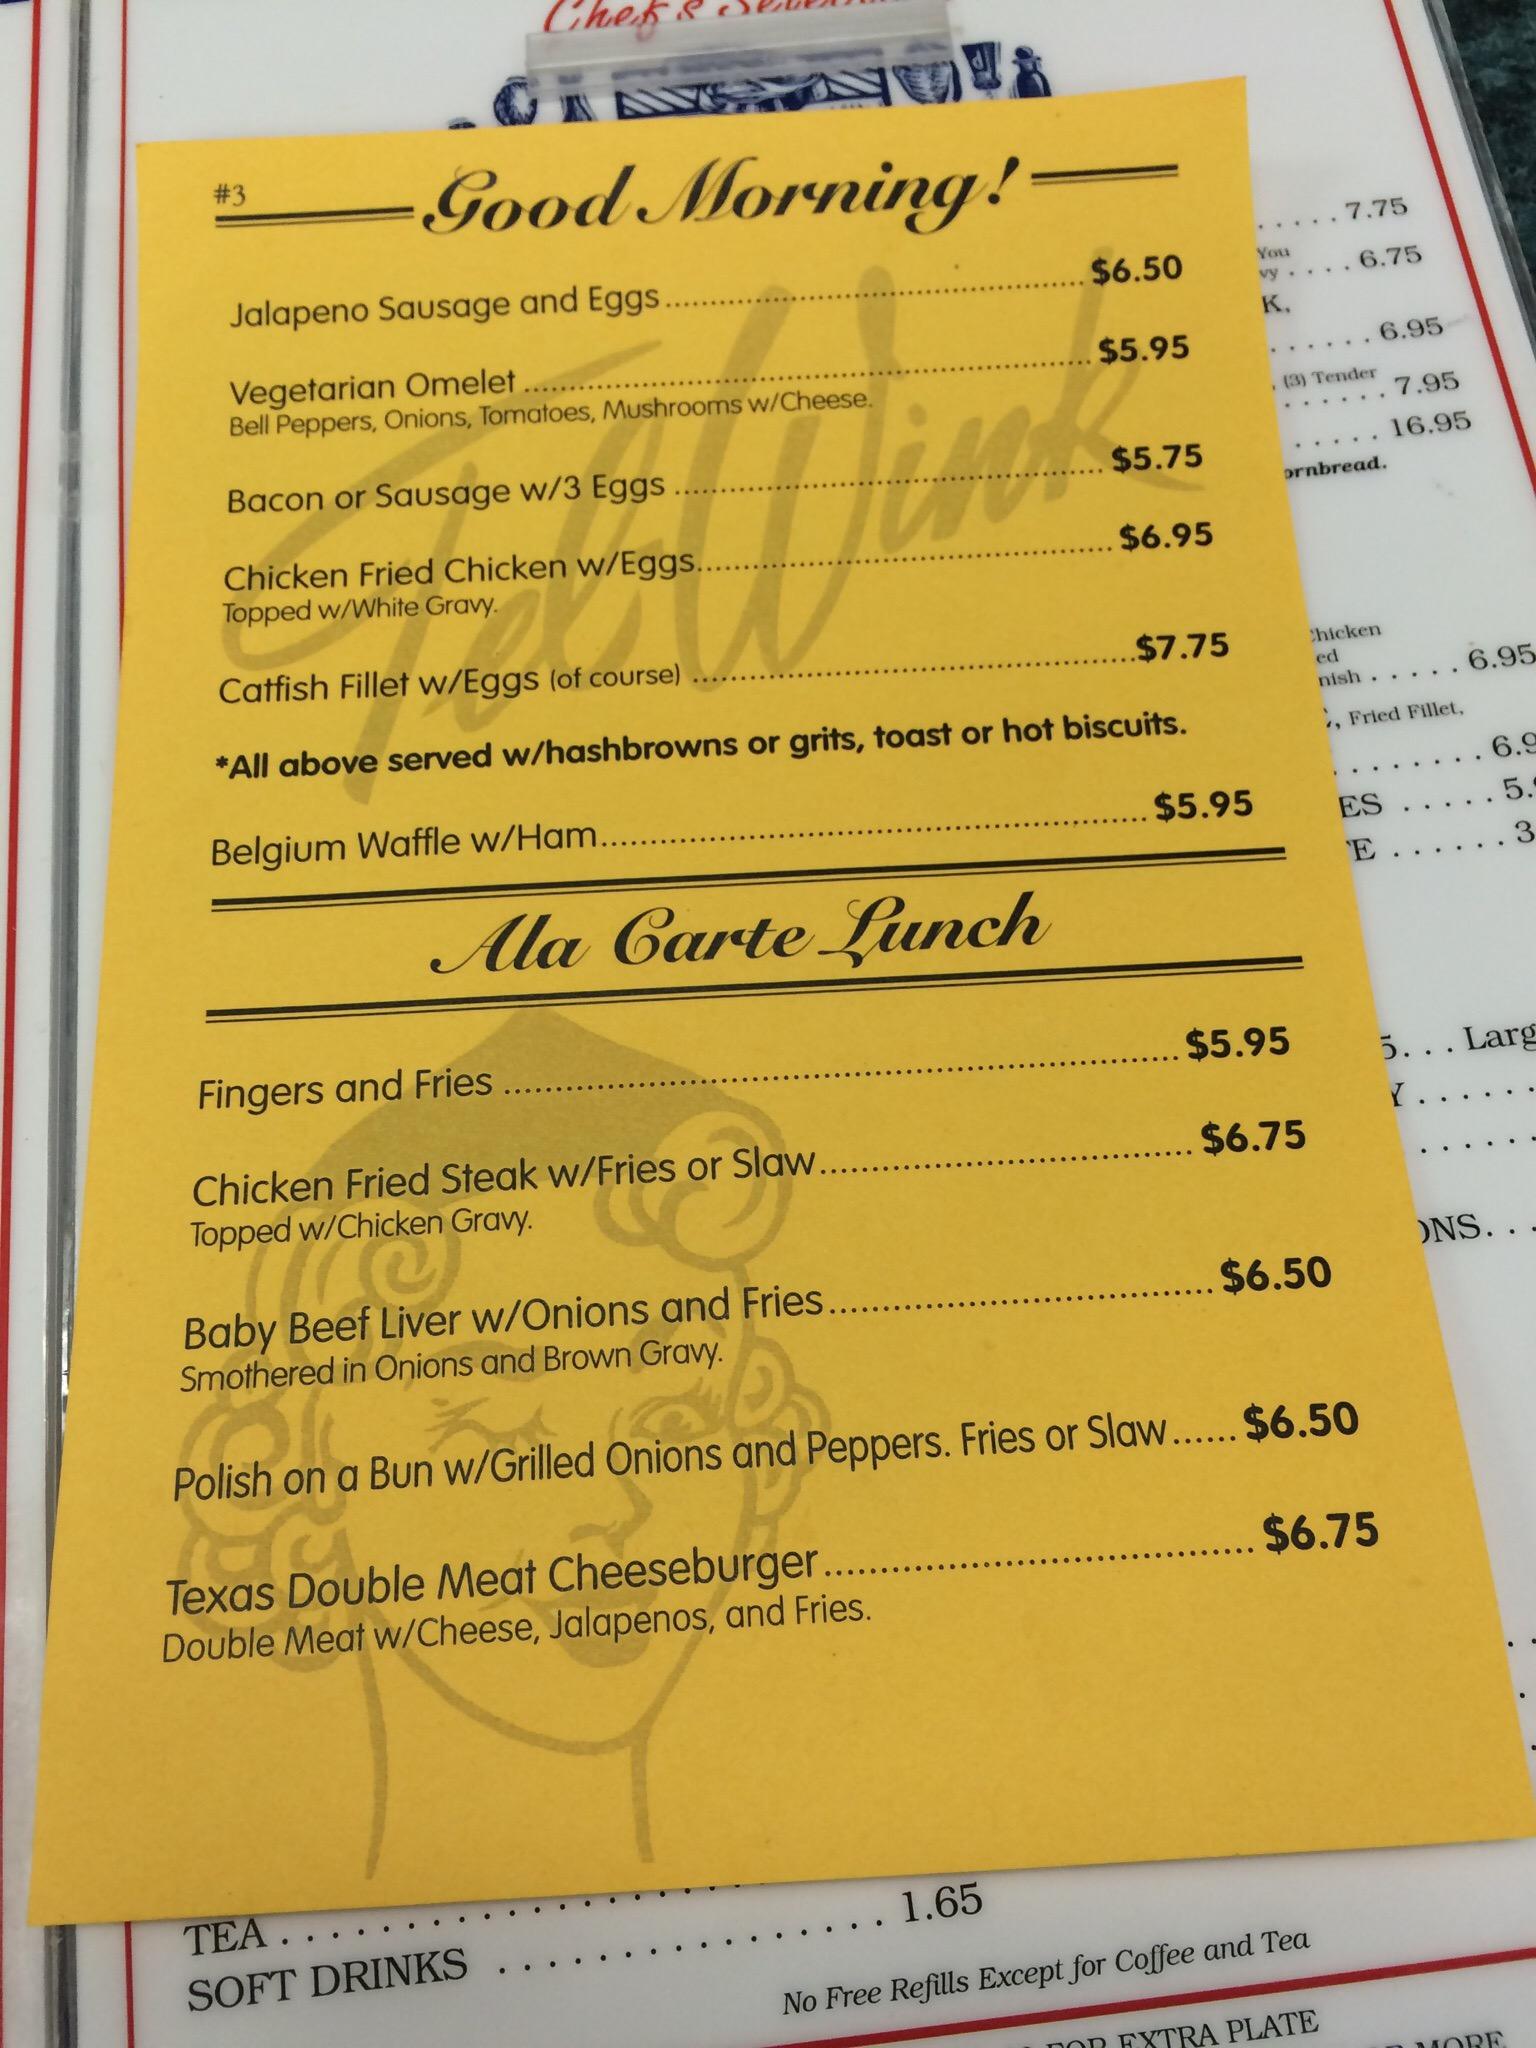 Chef's
#3
Good Morning!
Jalapeno Sausage and Eggs $6.50
Vegetarian Omelet $5.95
Bell Peppers, Onions, Tomatoes, Mushrooms w/Cheese.
Bacon or Sausage w/3 Eggs $5.75
Chicken Fried Chicken w/Eggs $6.95
Topped w/White Gravy.
Catfish Fillet w/Eggs (of course) $7.75
*All above served w/hashbrowns or grits, toast or hot biscuits.
Belgium Waffle w/Ham $5.95
TelWink
Ala Carte Lunch
Fingers and Fries $5.95
Chicken Fried Steak w/Fries or Slaw $6.75
Topped w/Chicken Gravy.
Baby Beef Liver w/Onions and Fries $6.50
Smothered in Onions and Brown Gravy.
Polish on a Bun w/Grilled Onions and Peppers. Fries or Slaw $6.50
Texas Double Meat Cheeseburger $6.75
Double Meat w/Cheese, Jalapenos, and Fries.
7.75
You
6.75
K,
6.95
(3) Tender
7.95
16.95
ornbread.
Chicken
ed
nish 6.95
Fried Fillet,
6.9
ES 5.
3
Larg
Y
ONS
TEA
SOFT DRINKS 1.65
No Free Refills Except for Coffee and Tea
FOR EXTRA PLATE
MORE